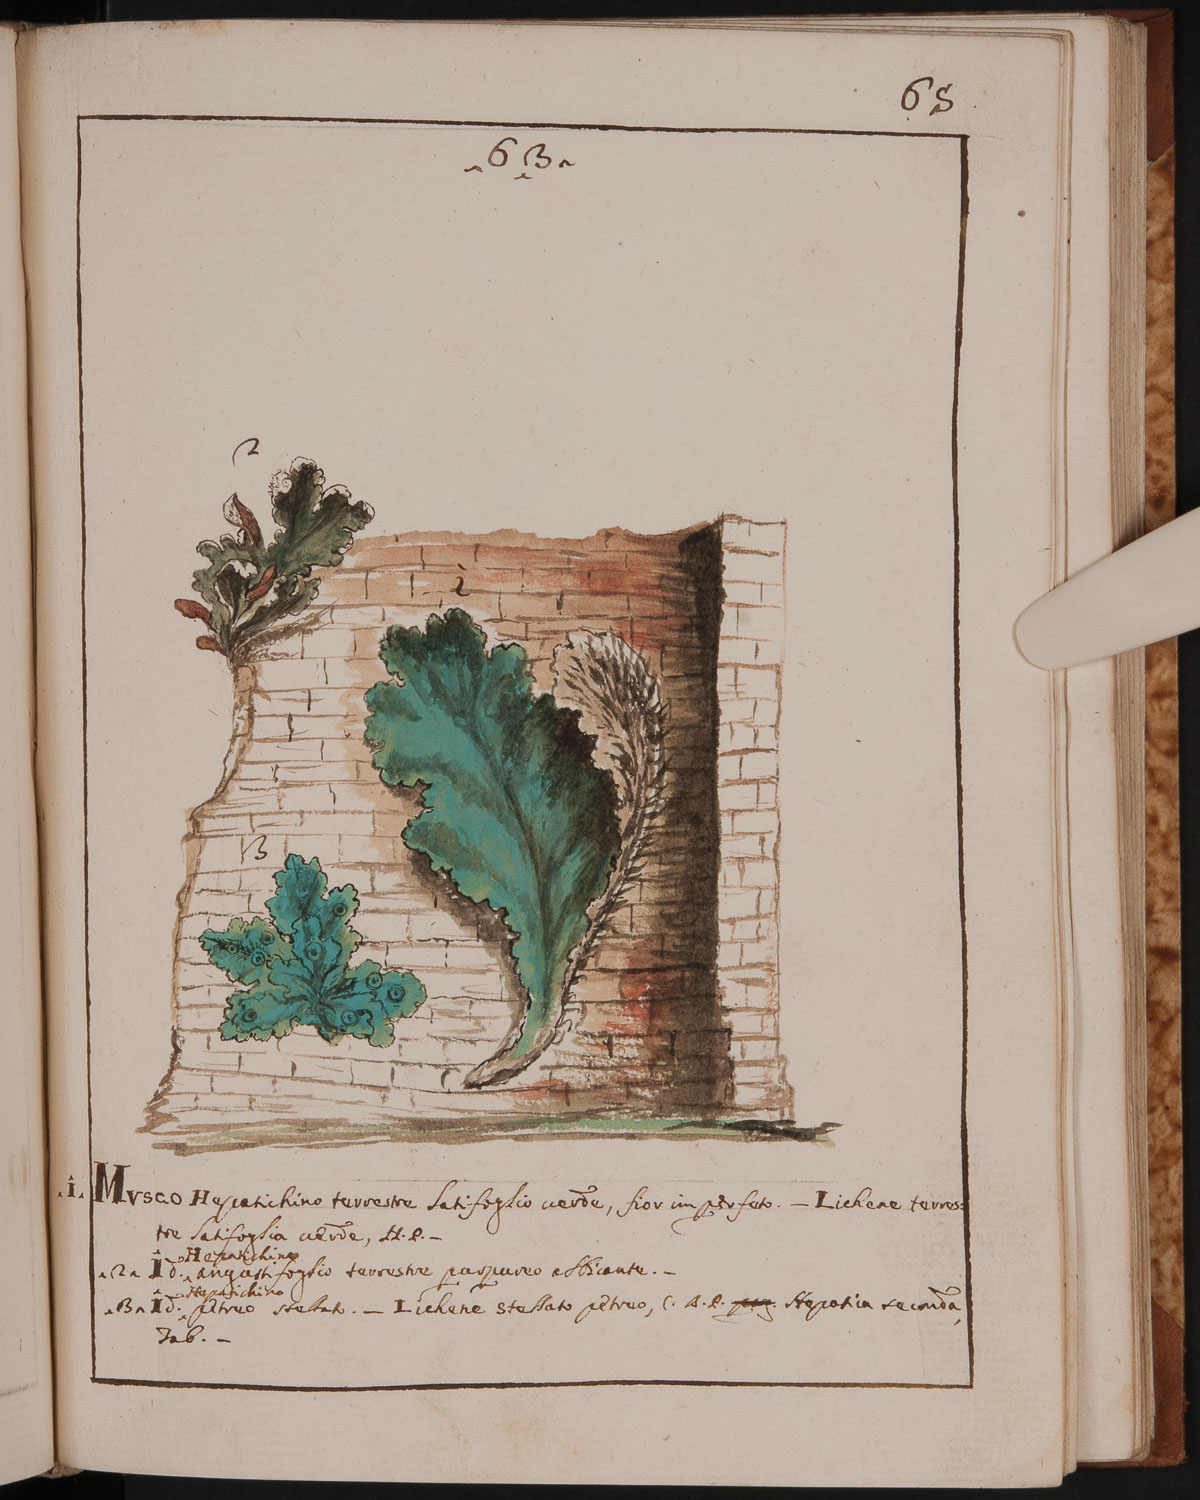 65
63
2
1
3
1. Mvsco Hepatichino terrestre latifoglio uerde, fior imperfeto. — Lichene terres:
tre latifoglia uerde, H. l. —
Hepatichino
2. Id. angustifoglio terrestre purpureo albicante. —
Hepatichino
3. Id. petreo stellato. — Lichene stellato petreo, C. B. l. Hepatica seconda,
Tab. —